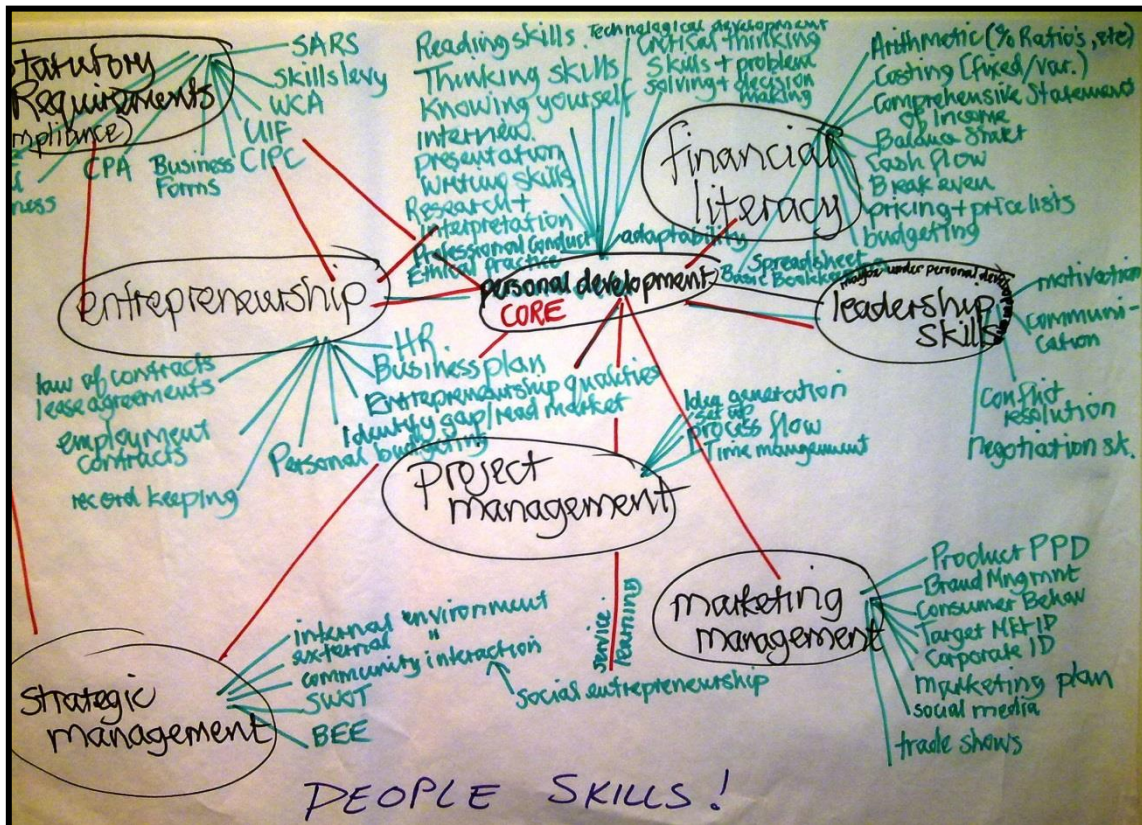 Statutory
Requirements
SARS
Skills levy
WCA
UIF
CIPC
CPA
Business
Forms
Reading skills
Thinking skills
Knowing yourself
interview
presentation
Writing skills
Research +
interpretation
Professional conduct
Ethical practice
Technological development
Critical thinking
Skills + problem
solving + decision
making
adaptability
financial
literacy
Arithmetic (% Ratio's, etc)
Costing (fixed/var.)
Comprehensive Statement
of Income
Cash flow
Break even
pricing + pricelists
budgeting
Spreadsheet
entrepreneurship
personal development
CORE
maybe under personal development
leadership
skills
motivation
communi-
cation
Conflict
resolution
negotiation sk.
law of contracts
lease agreements
employment
contracts
record keeping
HR
Business plan
Entrepreneurship qualities
Identify gap/read market
Personal budgeting
project
management
Idea generation
set up
process flow
Time mangement
service
learning
marketing
management
Product PPD
Brand Mngmnt
Consumer Behav
Target MKT IP
Corporate ID
marketing plan
social media
trade shows
strategic
management
internal environment
external "
community interaction
social entrepreneurship
SWOT
BEE
PEOPLE SKILLS!